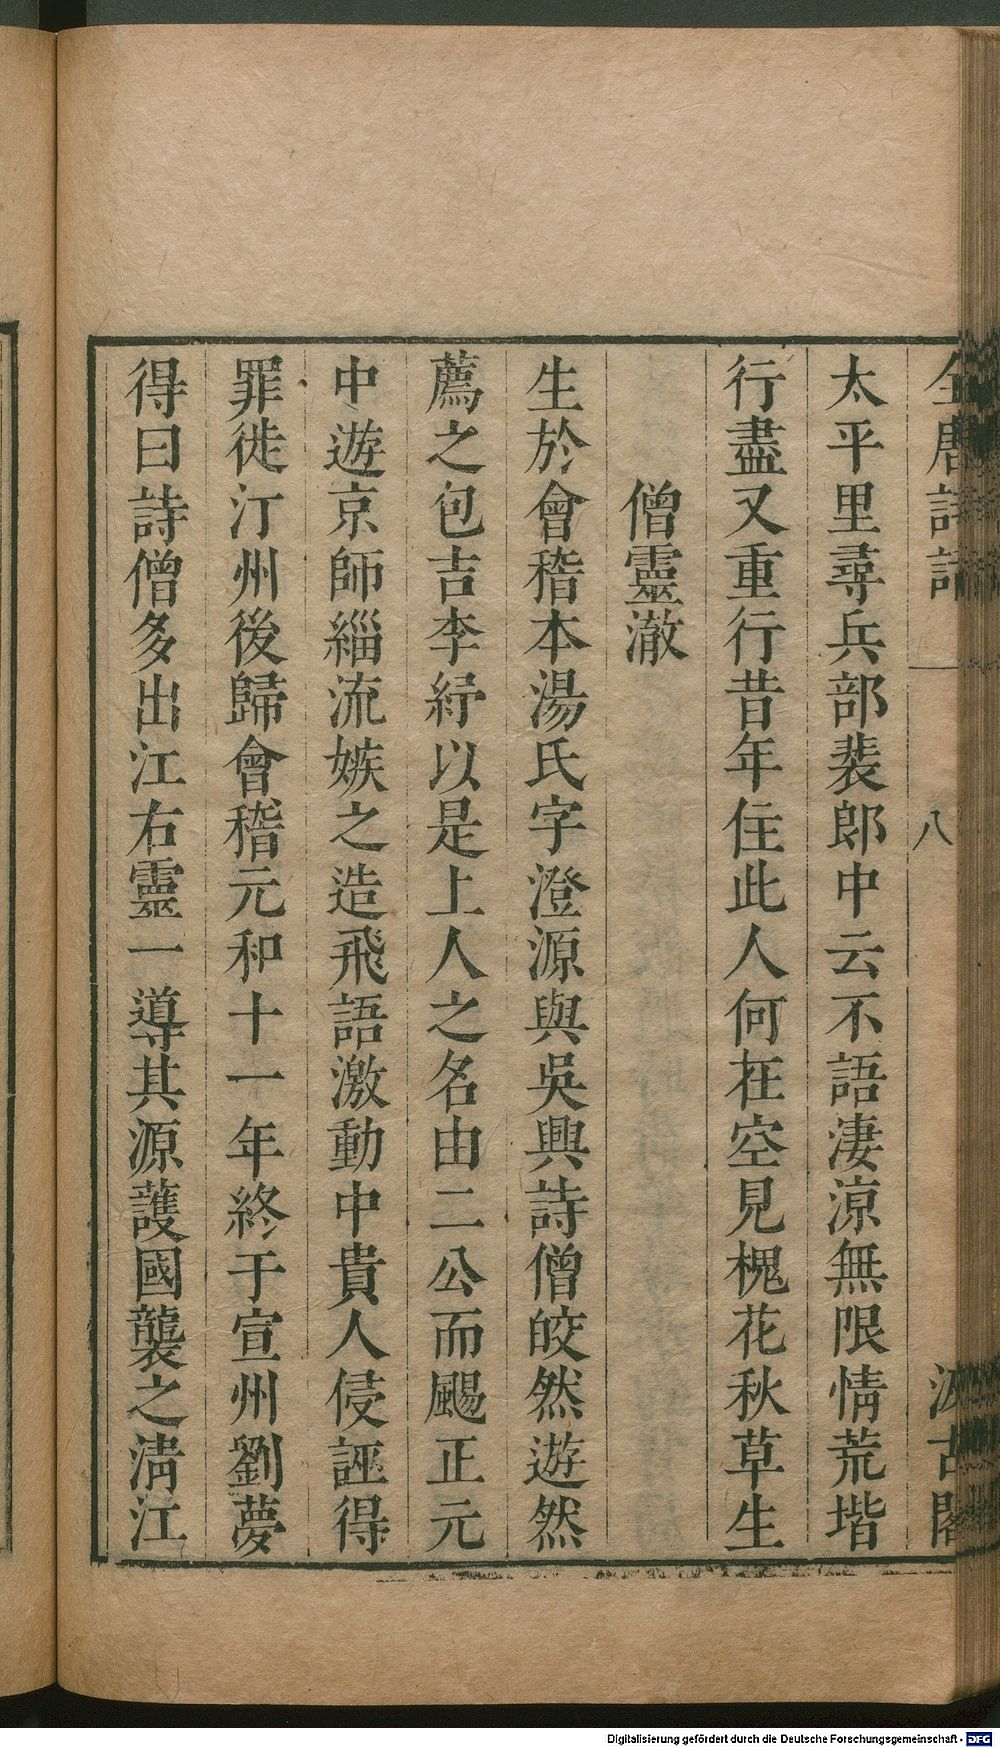 全唐詩話 八 汲古閣
太平里尋兵部裴郎中云不語淒涼無限情荒堦
行盡又重行昔年住此人何在空見槐花秋草生
僧靈澈
生於會稽本湯氏字澄源與吳興詩僧皎然遊然
薦之包吉李紓以是上人之名由二公而颺正元
中遊京師緇流嫉之造飛語激動中貴人侵誣得
罪徙汀州後歸會稽元和十一年終于宣州劉夢
得曰詩僧多出江右靈一導其源護國襲之清江
Digitalisierung gefördert durch die Deutsche Forschungsgemeinschaft - DFG